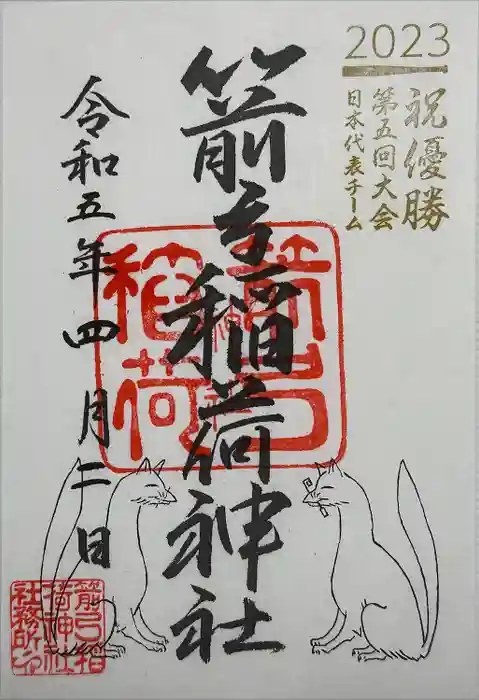 2023
祝優勝
第五回大会
日本代表チーム
箭弓稲荷神社
令和五年四月二日
箭弓稲荷
箭弓稲
荷神社
社務所